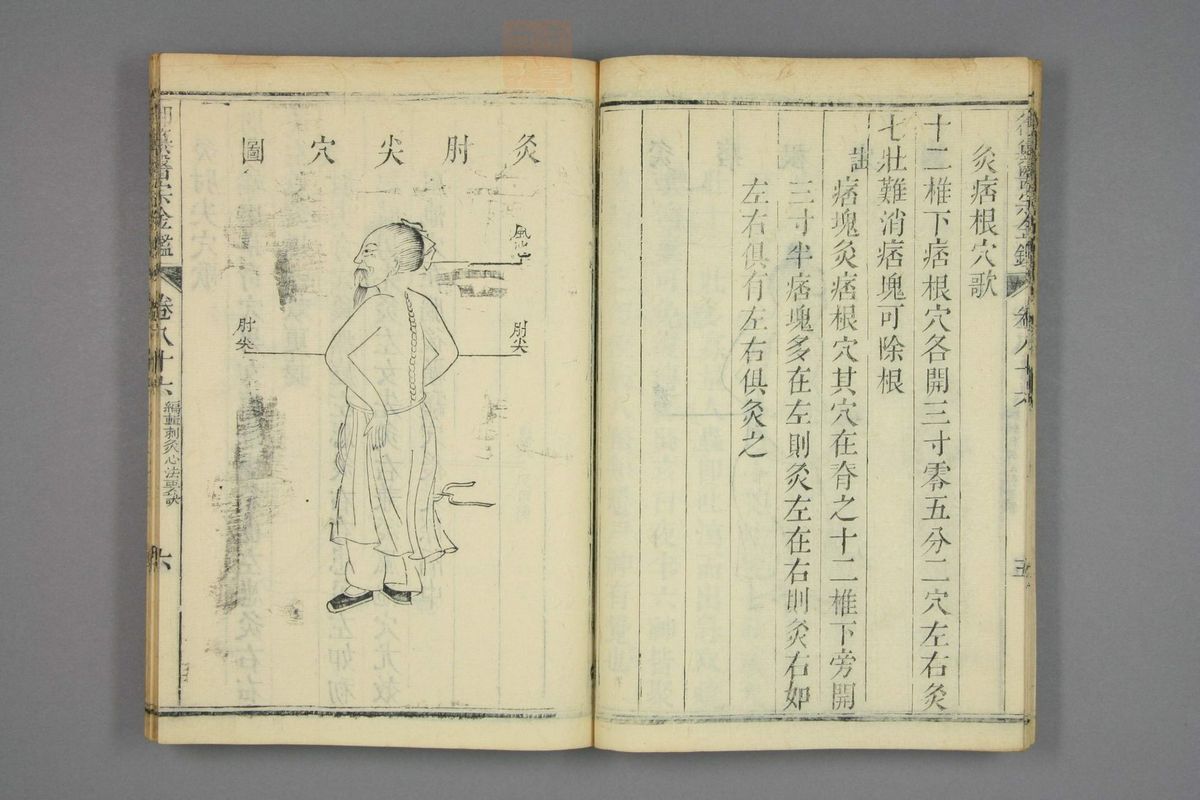 御纂醫宗金鑑
卷八十六
五
灸痞根穴歌
十二椎下痞根穴各開三寸零五分二穴左右灸
七壯難消痞塊可除根
註
痞塊灸痞根穴其穴在脊之十二椎下旁開
三寸半痞塊多在左則灸左在右則灸右如
左右俱有左右俱灸之
灸肘尖穴圖
風池穴
肘尖
肘尖
御纂醫宗金鑑
卷八十六
編輯刺灸心法要訣
六